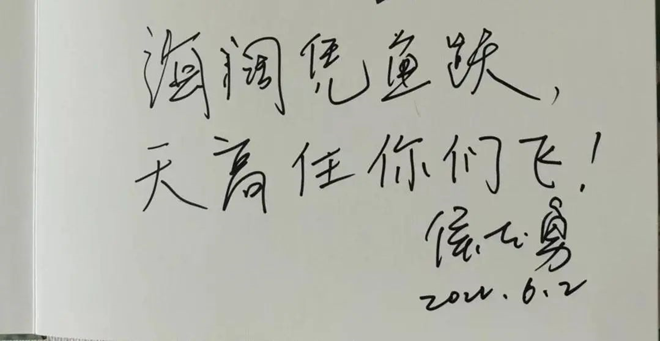 海阔凭鱼跃，
天高任你们飞！
侯志勇
2021.6.2